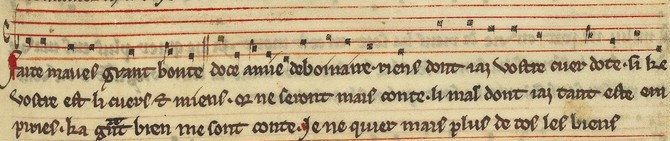 faite maves grant bonte doce amie deboinaire. riens dont iai vostre cuer dote. si ke
vostre est li cuers & miens. or ne seront mais conte. li mal dont iai tant este em
piries. ka gnt bien me sont conte. Je ne quier mais plus de tos les biens